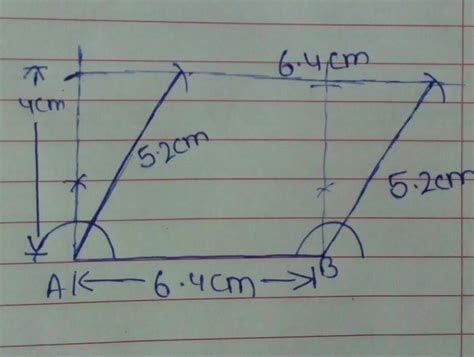 6.4cm
4cm
5.2cm
5.2cm
A
6.4cm
B